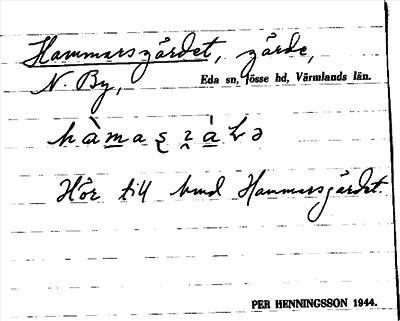 Hammarsgärdet, gärde,
N. By, Eda sn, Jösse hd, Värmlands län.
Hör till hmd Hammarsgärdet.
PER HENNINGSSON 1944.